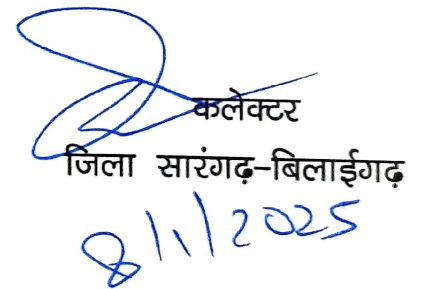 कलेक्टर
जिला सारंगढ़-बिलाईगढ़
8/1/2025